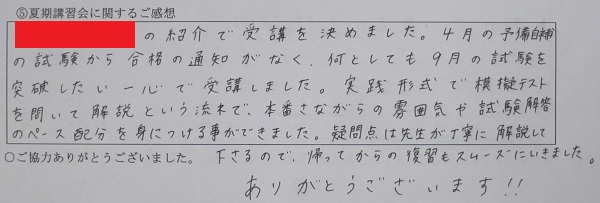 ⑤夏期講習会に関するご感想
の紹介で受講を決めました。4月の予備自補
の試験から合格の通知がなく、何としても9月の試験を
突破したい一心で受講しました。実践形式で模擬テスト
を開いて解説という流れで、本番さながらの雰囲気や試験解答
のペース配分を身につける事ができました。疑問点は先生が丁寧に解説して
○ご協力ありがとうございました。 下さるので、帰ってからの復習もスムーズにいきました。
ありがとうございます!!